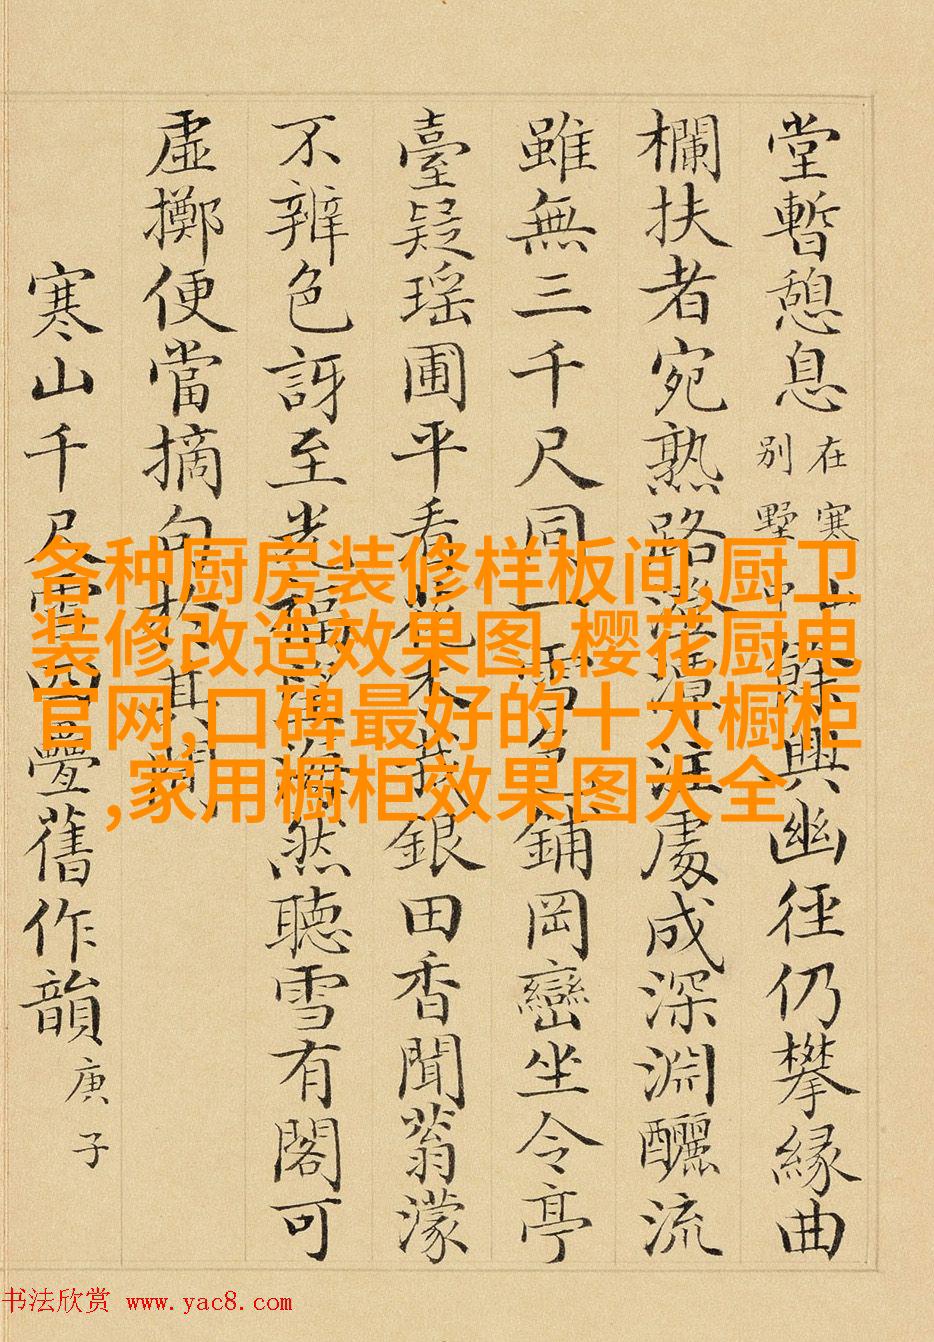 堂暫憩息在寒山別墅中餘興幽徑仍攀緣曲
欄扶者宛熟路潑潭注處成深淵釃流
雖無三千尺同一雪色鋪岡巒坐令亭
臺疑瑶圃平看花木茂銀田香聞蓊濛
不辨色訝至
然聽雪有閣可
虛擲便當摘句於其間
寒山千尺雪四疊舊作韻庚子
各种厨房装修样板间,厨卫
装修改造效果图,樱花厨电
官网,口碑最好的十大橱柜
,家用橱柜效果图大全
书法欣赏 www.yac8.com